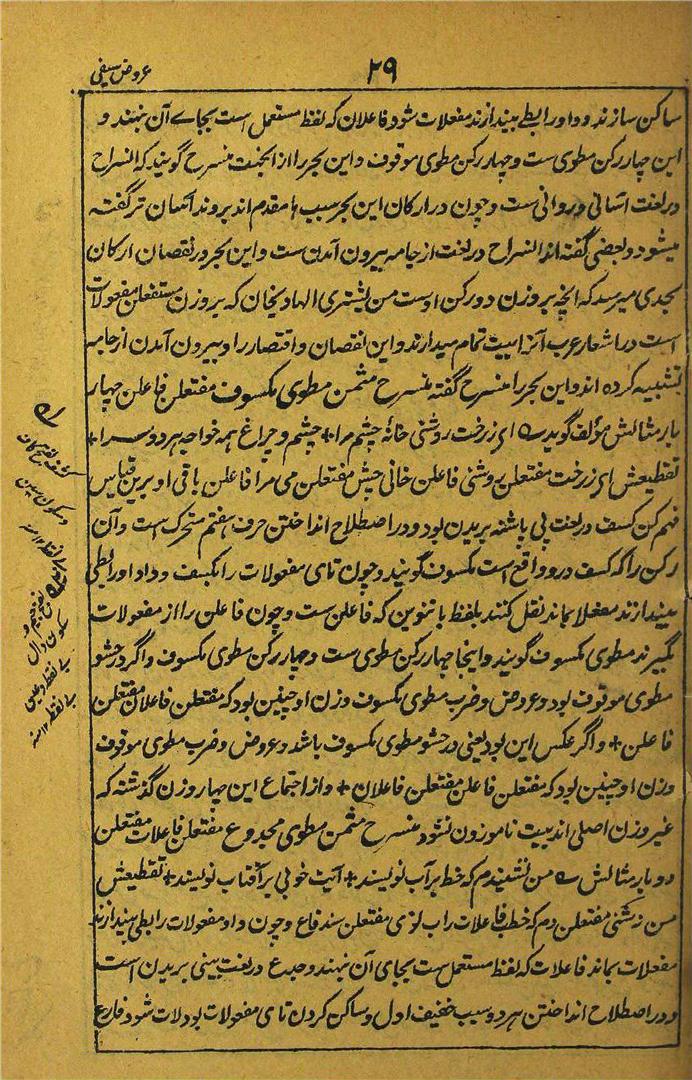 ۲۹
عروض سیفی
ساکن سازند و واو را بطے بیندازند مفعلات شود فاعلان که لفظ مستعمل است بجاے آن بنهند و
این چهار رکن مطوی ست و چهار رکن مطوی موقوف و این بحر را از انجهت منسرح گویند که انسراح
در لغت آسانی و روانی ست و چون در ارکان این بحر سببها مقدم اند بر وتد آسان تر گفته
میشود و بعضی گفته اند انسراح در لغت از جامه بیرون آمدن ست و این بحر در نقصان ارکان
بحدی میرسد که آنچه بر وزن دو رکن اوست من یشتری الباذنجان که بر وزن مستفعلن مفعولات
است در اشعار عرب آنرا بیت تمام میدارند و این نقصان و اقتصار را و بیرون آمدن از جامه
تشبیه کرده اند و این بحر را منسرح گفته منسرح مثمن مطوی مکسوف مفتعلن فاعلن چهار
بار مثالش مؤلف گوید ے ای ز رخت روشنی خانهٔ چشم مرا + چشم و چراغ همه خواجه هر دو سرا +
تقطیعش ای ز رخت مفتعلن روشنی فاعلن خانی چش مفتعلن می مرا فاعلن باقی را برین قیاس
فهم کن کسف در لغت پی پاشنه بریدن بود و در اصطلاح انداختن حرف هفتم متحرک است و آن
رکن را که کسف درو واقع است مکسوف گویند و چون تای مفعولات را بکسف و واو او را بطی
بیندازند مفعلا بماند نقل کنند بلفظ با تنوین که فاعلن ست و چون فاعلن را از مفعولات
بگیرند مطوی مکسوف گویند و اینجا چهار رکن مطوی ست و چهار رکن مطوی مکسوف و اگر در حشو
مطوی موقوف بود و عروض و ضرب مطوی مکسوف وزن او چنین بود که مفتعلن فاعلان مفتعلن
فاعلن + و اگر عکس این بود یعنی در حشو مطوی مکسوف باشد و عروض و ضرب مطوی موقوف
وزن او چنین بود که مفتعلن فاعلن مفتعلن فاعلان + و از اجتماع این چهار وزن گذشته که
غیر وزن اصلی اند بیت ناموزون نشود منسرح مثمن مطوی مجدوع مفتعلن فاعلات مفتعلن
دو بار مثالش ے من نشنیدم که خط بر آب نویسند + آیت خوبی بر آفتاب نویسند + تقطیعش
من نشنی مفتعلن دم که خطب فاعلات راب نوی مفتعلن سند فاع و چون واو مفعولات را بطی بیندازند
مفعلات بماند فاعلات که لفظ مستعمل ست بجای آن بنهند و جدع در لغت بینی بریدن است
و در اصطلاح انداختن هر دو سبب خفیف اول و ساکن کردن تای مفعولات بود لات شود فاع